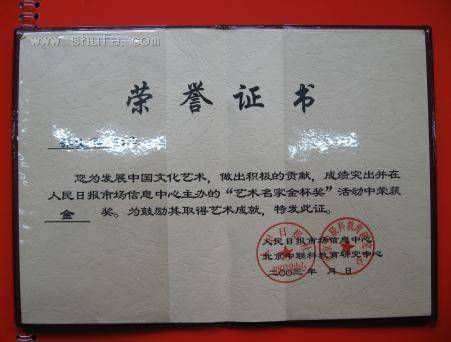 书法
www.shufa.com
荣誉证书
您为发展中国文化艺术，做出积极的贡献，成绩突出并在
人民日报市场信息中心主办的“艺术名家金杯奖”活动中荣获
金 奖。为鼓励其取得艺术成就，特发此证。
人民日报市场信息中心
北京中联科教育研究中心
二00三年 月 日